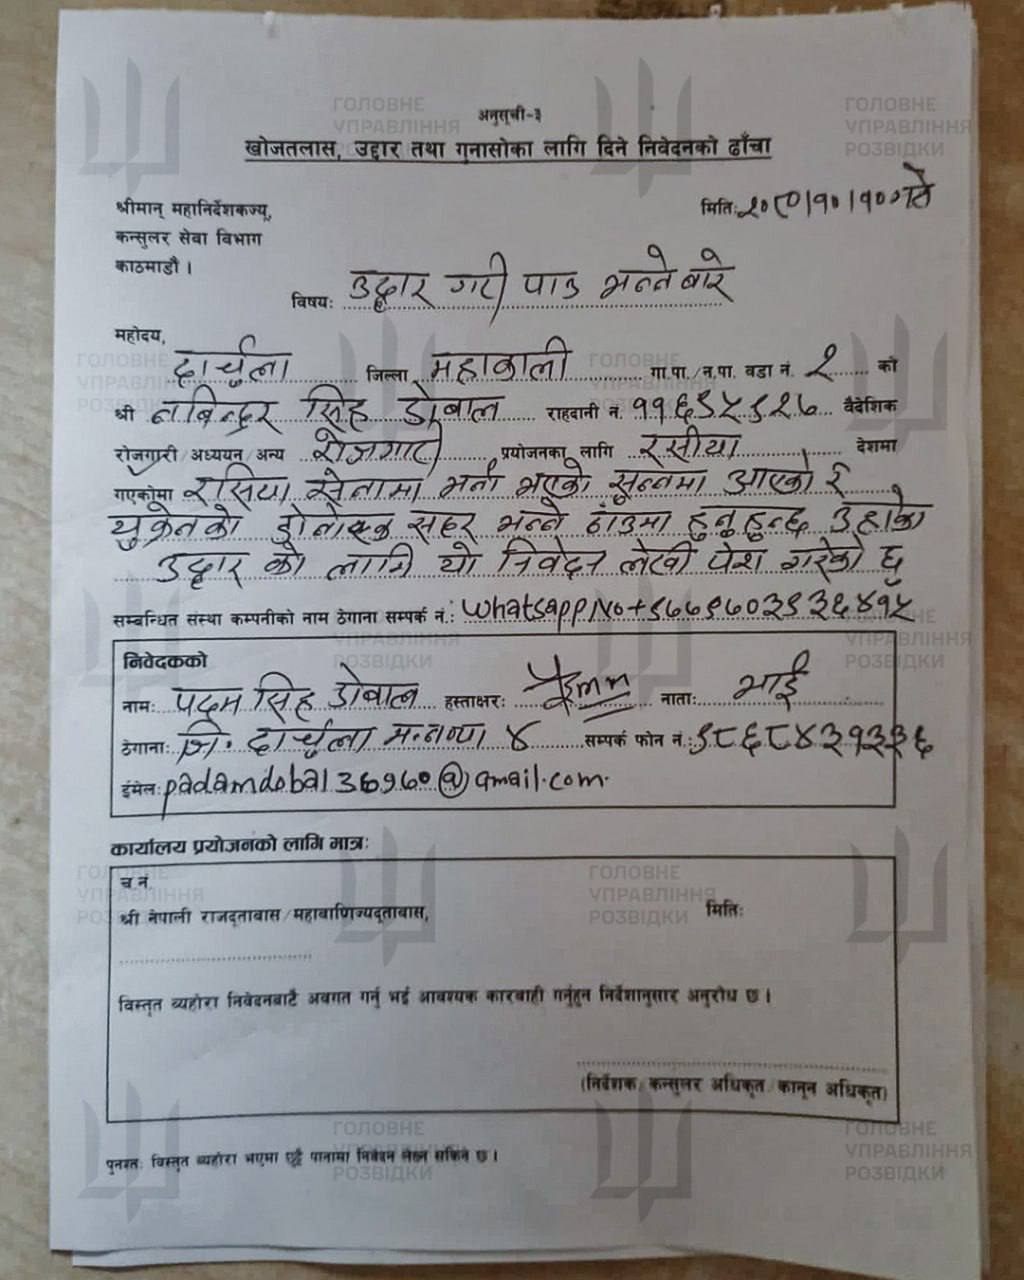 अनुसूची-३
खोजतलास, उद्दार तथा गुनासोका लागि दिने निवेदनको ढाँचा
श्रीमान् महानिर्देशकज्यू, मितिः २०८०/१०/१० गते
कन्सुलर सेवा विभाग
काठमाडौं ।
विषयः उद्धार गरी पाउ भन्ने बारे
महोदय,
दार्चुला जिल्ला महाकाली गा.पा./न.पा. वडा नं. २ को
श्री नबिन्द्र सिंह डोबाल राहदानी नं. ११६९५९२७ वैदेशिक
रोजगारी/अध्ययन/अन्य रोजगारी प्रयोजनका लागि रसीया देशमा
गएकोमा रसिया सेनामा भर्ना भएको सुन्नमा आएको ई
युक्रेनको सहर भन्ने ठाँउमा हुनुहुन्छ उहाको
उद्धार को लागी यो निवेदन लेखी पेश गरेको छु
सम्बन्धित संस्था कम्पनीको नाम ठेगाना सम्पर्क नं.: Whatsapp No +९७७९७०३९३६४१५
निवेदकको
नामः पदम सिंह डोबाल हस्ताक्षरः नाताः भाई
ठेगानाः जि. दार्चुला ४ सम्पर्क फोन नं.: ९८६८४३१३३६
ईमेलः padamdobal36960@gmail.com.
कार्यालय प्रयोजनको लागि मात्रः
च.नं.
श्री नेपाली राजदूतावास/महावाणिज्यदूतावास, मितिः
विस्तृत व्यहोरा निवेदनबाटै अवगत गर्नु भई आवश्यक कारबाही गर्नुहुन निर्देशानुसार अनुरोध छ ।
(निर्देशक/कन्सुलर अधिकृत/कानून अधिकृत)
पुनश्चः विस्तृत व्यहोरा भएमा छुट्टै पानामा निवेदन लेख्न सकिने छ ।
ГОЛОВНЕ
УПРАВЛІННЯ
РОЗВІДКИ